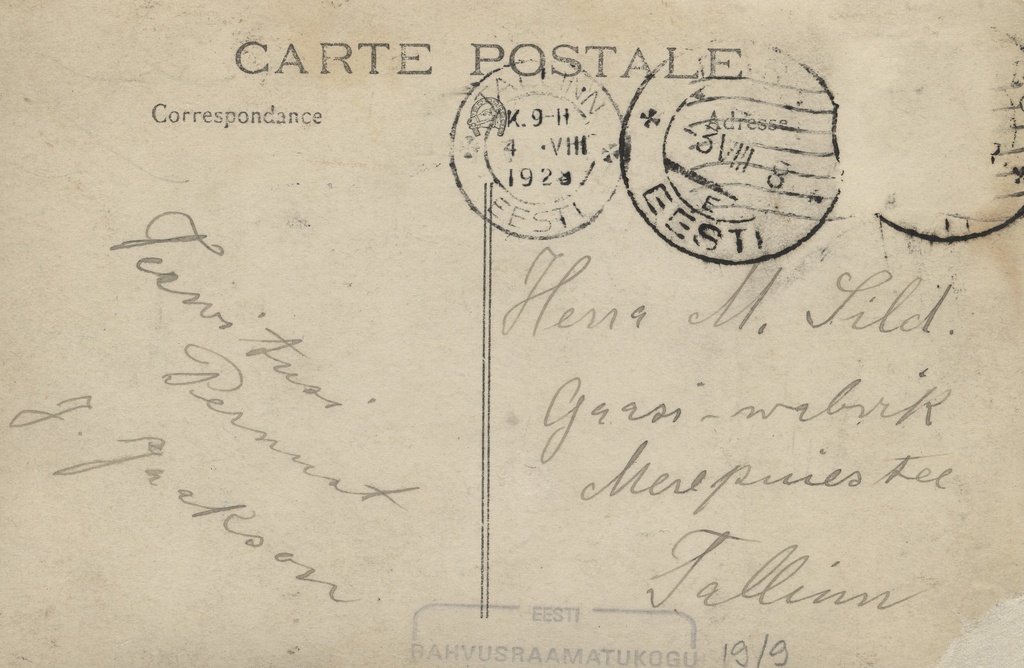 CARTE POSTALE
Correspondance
Adresse
TALLINN
K. 9-11
4 · VIII
1923
EESTI
3 VIII
E
EESTI
Terwitusi
Pernust
J. Jaakson
Herra M. Sild.
Gaasi-wabrik
Merepuiestee
Tallinn
EESTI
RAHVUSRAAMATUKOGU
19/9